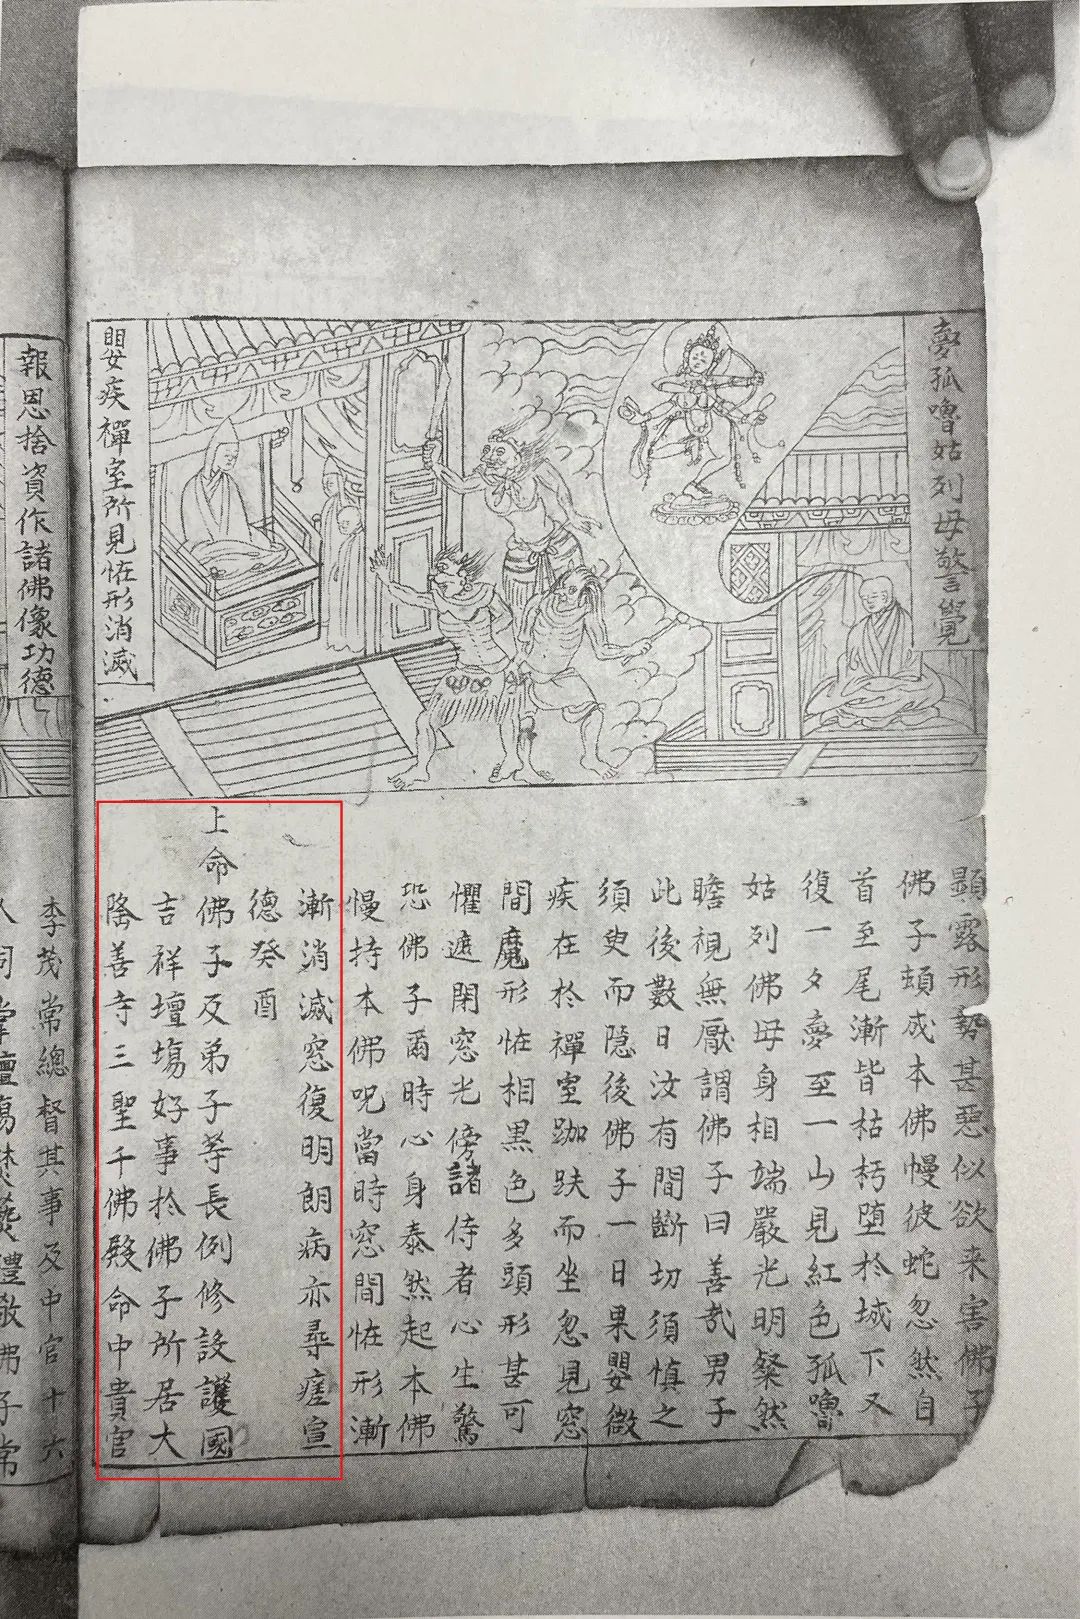 夢孤嚕姑列母警覺
嬰疾禪室所見恠形消滅
顯露形勢甚惡似欲来害佛子
佛子頓成本佛幔彼蛇忽然自
首至尾漸皆枯朽堕於城下又
復一夕夢至一山見紅色孤嚕
姑列佛母身相端嚴光明粲然
瞻視無厭謂佛子曰善哉男子
此後數日汝有間斷切須慎之
須臾而隱後佛子一日果嬰微
疾在於禪室跏趺而坐忽見窓
間魔形恠相黒色多頭形甚可
懼遮閉窓光傍諸侍者心生驚
恐佛子爾時心身泰然起本佛
慢持本佛呪當時窓間恠形漸
漸消滅窓復明朗病亦尋瘥宣
德癸酉
上命佛子及弟子等長例修設護國
吉祥壇場好事於佛子所居大
隆善寺三聖千佛殿命中貴官
報恩捨資作諸佛像功德
李茂常總督其事及中官十六
人同掌壇場焚燎禮敬佛子常